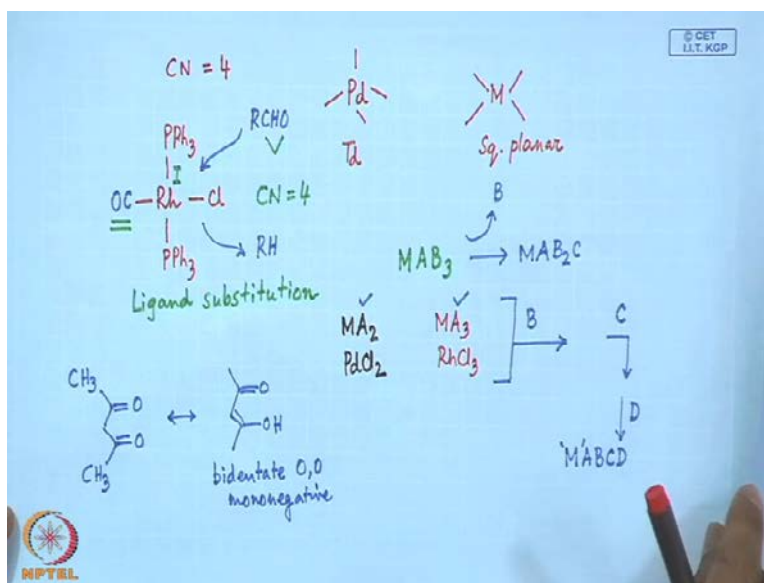 © CET
I.I.T. KGP
CN = 4
Pd
Td
M
Sq. planar
PPh3
I
OC — Rh — Cl
PPh3
RCHO
RH
CN = 4
Ligand substitution
B
MAB3 → MAB2C
MA2
PdCl2
MA3
RhCl3
B
C
D
'M'ABCD
CH3
O
O
CH3
↔
O
OH
bidentate O,O
mononegative
NPTEL